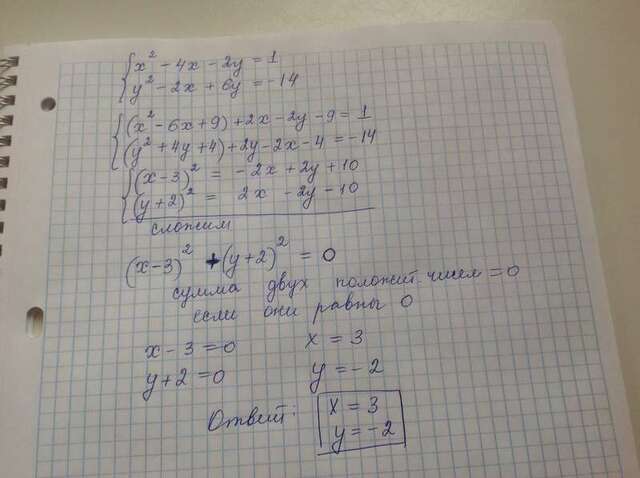 x² - 4x - 2y = 1
y² - 2x + 6y = -14
(x² - 6x + 9) + 2x - 2y - 9 = 1
(y² + 4y + 4) + 2y - 2x - 4 = -14
(x - 3)² = -2x + 2y + 10
(y + 2)² = 2x - 2y - 10
сложим
(x - 3)² + (y + 2)² = 0
сумма двух положит. чисел = 0
если они равны 0
x - 3 = 0 x = 3
y + 2 = 0 y = -2
Ответ: x = 3
y = -2